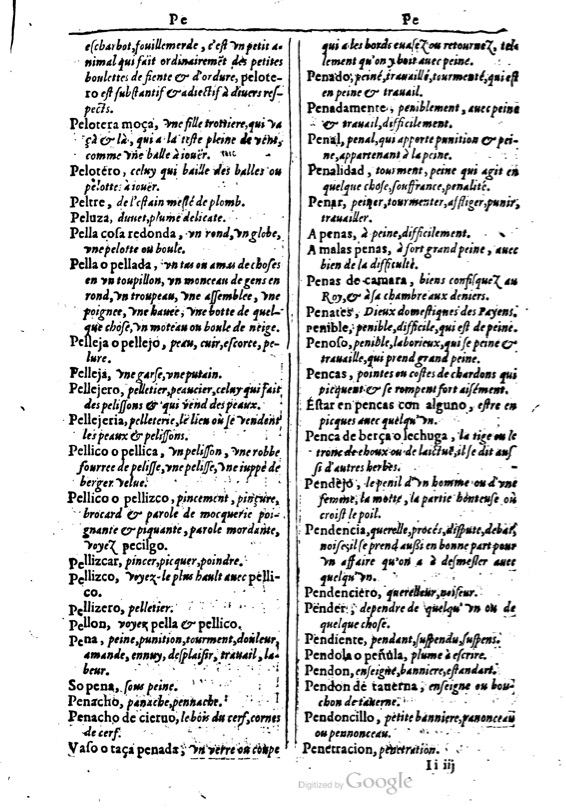 Pe
eſcharbot, fouillemerde, c'eſt vn petit a-
nimal qui fait ordinairemẽt des petites
boulettes de fiente & d'ordure, pelote-
ro eſt ſubſtantif & adiectif à diuers reſ-
pects.
Pelotera moça, vne fille trottiere, qui va
çà & là, qui a la teſte pleine de vẽnt,
comme vne balle à ioüer.
Pelotéro, celuy qui baille des balles ou
pelotte à ioüer.
Peltre, de l'eſtain meſlé de plomb.
Peluza, duuet, plume delicate.
Pella coſa redonda, vn rond, vn globe,
vne pelotte ou boule.
Pella o pellada, vn tas ou amas de choſes
en vn toupillon, vn monceau de gens en
rond, vn troupeau, vne aſſemblee, vne
poignee, vne hauee, vne botte de quel-
que choſe, vn moteau ou boule de neige.
Pelleja o pellejo, peau, cuir, eſcorte, pe-
lure.
Pelleja, vne garſe, vne putain.
Pellejero, pelletier, peaucier, celuy qui fait
des peliſſons & qui vend des peaux.
Pellejeria, pelleterie, le lieu où ſe vendent
les peaux & peliſſons.
Pellico o pellica, vn peliſſon, vne robbe
fourree de peliſſe, vne peliſſe, vne iuppe de
berger velue.
Pellico o pellizco, pincement, pinçure,
brocard & parole de mocquerie poi-
gnante & piquante, parole mordante,
voyez pecilgo.
Pellizcar, pincer, picquer, poindre.
Pellizco, voyez-le plus hault auec pelli-
co.
Pellizero, pelletier.
Pellon, voyez pella & pellico.
Pena, peine, punition, tourment, douleur,
amande, ennuy, deſplaiſir, trauail, la-
beur.
So pena, ſous peine.
Penacho, panache, pennache.
Penacho de cieruo, le bois du cerf, cornes
de cerf.
Vaſo o taça penada, vn verre ou coupe
Pe
qui a les bords euaſez ou retournez, tel-
lement qu'on y boit auec peine.
Penado, peiné, trauaillé, tourmenté, qui eſt
en peine & trauail.
Penadamente, peniblement, auec peine
& trauail, difficilement.
Penal, penal, qui apporte punition & pei-
ne, appartenant à la peine.
Penalidad, tourment, peine qui agit en
quelque choſe, ſouffrance, penalité.
Penar, peiner, tourmenter, affliger, punir,
trauailler.
A penas, à peine, difficilement.
A malas penas, à fort grand peine, auec
bien de la difficulté.
Penas de camara, biens confiſquez au
Roy, & à ſa chambre aux deniers.
Penates, Dieux domeſtiques des Payens.
Penible, penible, difficile, qui eſt de peine.
Penoſo, penible, laborieux, qui ſe peine &
trauaille, qui prend grand peine.
Pencas, pointes ou coſtes de chardons qui
picquent & ſe rompent fort aiſément.
Eſtar en pencas con alguno, eſtre en
picques auec quelqu'vn.
Penca de berça o lechuga, la tige ou le
tronc de choux ou de laictuë, il ſe dit auſ
ſi d'autres herbes.
Pendejo, le penil d'vn homme ou d'vne
femme, la motte, la partie honteuſe où
croiſt le poil.
Pendencia, querelle, procés, diſpute, debat,
noiſe, il ſe prend auſſi en bonne part pour
vn affaire qu'on a à deſmeſler auec
quelqu'vn.
Pendenciero, querelleur, noiſeur.
Pender, dependre de quelqu'vn ou de
quelque choſe.
Pendiente, pendant, ſuſpendu, ſuſpens.
Pendola o peñula, plume à eſcrire.
Pendon, enſeigne, banniere, eſtandart.
Pendon de tauerna, enſeigne ou bou-
chon de tauerne.
Pendoncillo, petite banniere, panonceau
ou pennonceau.
Penetracion, penetration.
Ii iij
Digitized by Google